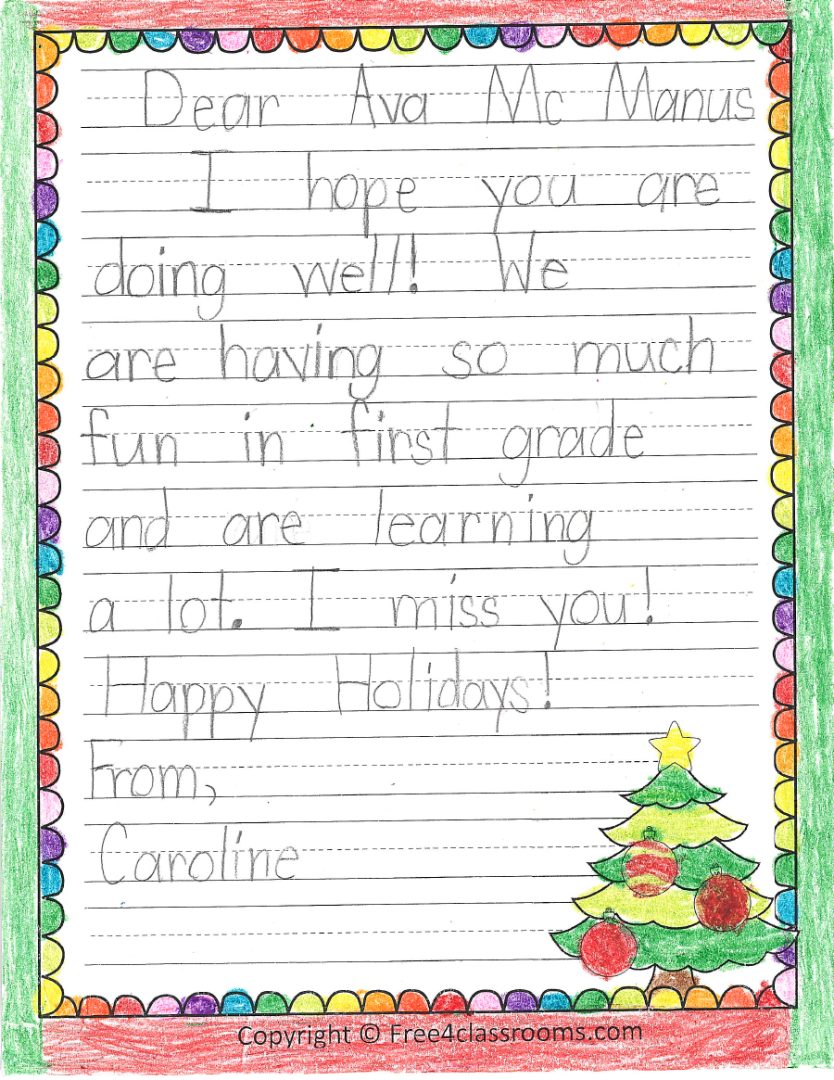 Dear Ava Mc Manus
I hope you are
doing well! We
are having so much
fun in first grade
and are learning
a lot. I miss you!
Happy Holidays!
From,
Caroline
Copyright © Free4classrooms.com